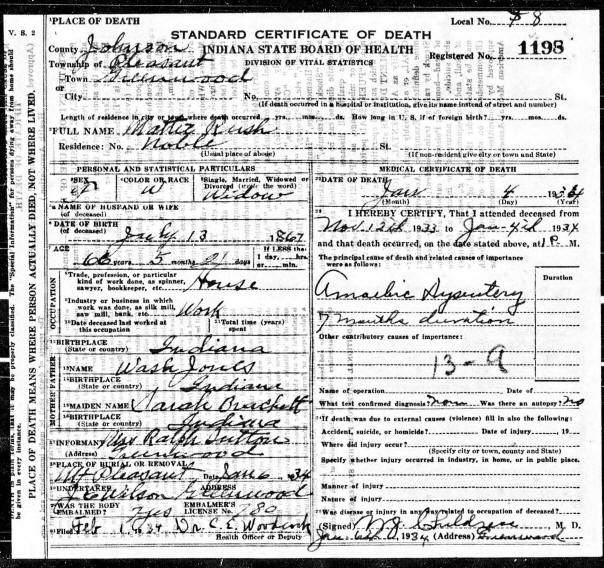 V. S. 2
¹PLACE OF DEATH
Local No. 8
STANDARD CERTIFICATE OF DEATH
County Johnson INDIANA STATE BOARD OF HEALTH Registered No. 1198
Township of Pleasant DIVISION OF VITAL STATISTICS
Town Greenwood
or
City No. St.
(If death occurred in a hospital or institution, give its name instead of street and number)
Length of residence in city or town where death occurred yrs. mos. ds. How long in U. S. if of foreign birth? yrs. mos. ds.
²FULL NAME Mattie Rush
Residence: No. Noble St.
(Usual place of abode) (If non-resident give city or town and State)
PERSONAL AND STATISTICAL PARTICULARS
³SEX ⁴COLOR OR RACE ⁵Single, Married, Widowed or Divorced (write the word)
W Widow
⁶NAME OF HUSBAND OR WIFE
(of deceased)
⁷DATE OF BIRTH
(of deceased) July 13 1867
⁸AGE If LESS than
66 years 5 months 21 days 1 day, hrs. or min.
OCCUPATION
⁹Trade, profession, or particular
kind of work done, as spinner,
sawyer, bookkeeper, etc. House
¹⁰Industry or business in which
work was done, as silk mill,
saw mill, bank, etc. Work
¹¹Date deceased last worked at
this occupation
¹²Total time (years)
spent
¹³BIRTHPLACE
(State or country) Indiana
FATHER
¹⁴NAME Wash Jones
¹⁵BIRTHPLACE
(State or country) Indiana
MOTHER
¹⁶MAIDEN NAME Sarah Brackett
¹⁷BIRTHPLACE
(State or country) Indiana
¹⁸INFORMANT Mrs Ralph Sutton
(Address) Greenwood
¹⁹PLACE OF BURIAL OR REMOVAL
Mt Pleasant Date Jan 6 1934
²⁰UNDERTAKER ADDRESS
Watson Greenwood
WAS THE BODY EMBALMED? Yes EMBALMER'S LICENSE No. 780
Filed Feb 1934 Dr. C. E. Woodcock
Health Officer or Deputy
MEDICAL CERTIFICATE OF DEATH
DATE OF DEATH
Jan 4 1934
(Month) (Day) (Year)
I HEREBY CERTIFY, That I attended deceased from
Nov. 12th 1933 to Jan 4th 1934
and that death occurred, on the date stated above, at 1 P. M.
The principal cause of death and related causes of importance
were as follows:
Duration
Amoebic Dysentery
7 months duration
Other contributory causes of importance:
13-9
Name of operation Date of
What test confirmed diagnosis? None Was there an autopsy? No
If death was due to external causes (violence) fill in also the following:
Accident, suicide, or homicide? Date of injury 19
Where did injury occur?
(Specify city or town, county and State)
Specify whether injury occurred in industry, in home, or in public place.
Manner of injury
Nature of injury
Was disease or injury in any way related to occupation of deceased?
(Signed) M. D.
Jan. 1934 (Address) Greenwood
PLACE OF DEATH MEANS WHERE PERSON ACTUALLY DIED, NOT WHERE LIVED.